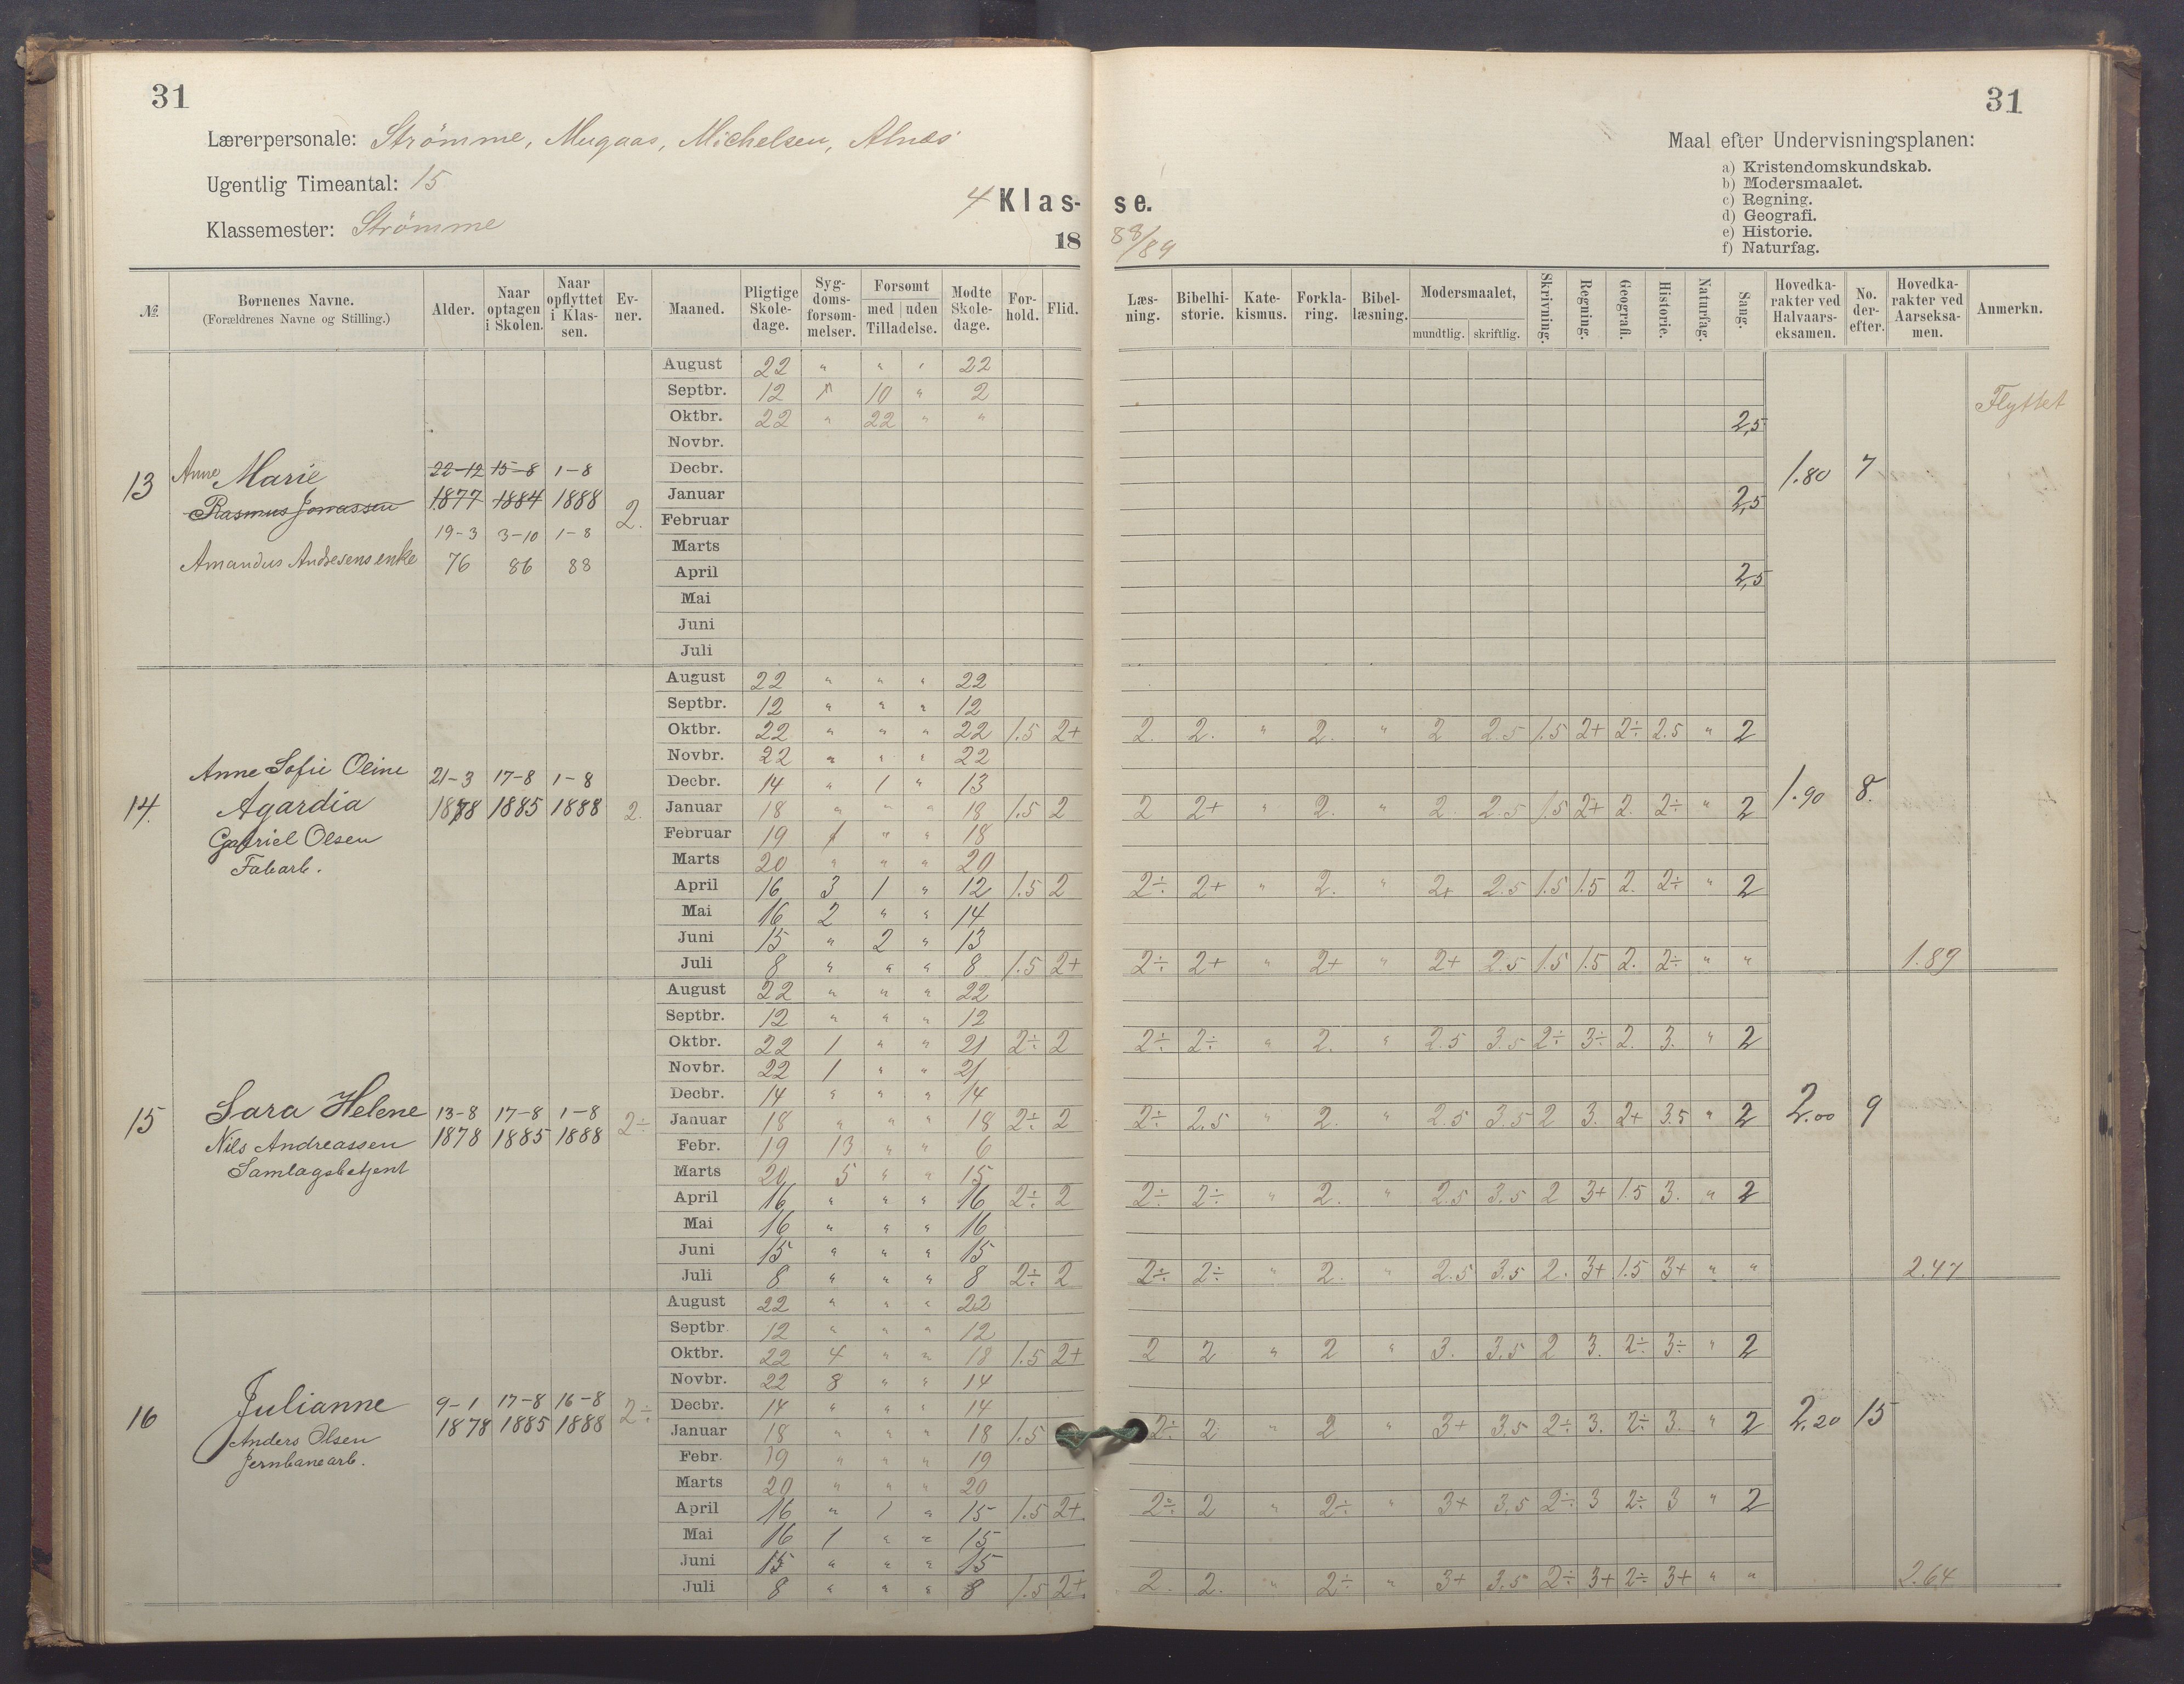 31
31
Lærerpersonale: Strömme, Mugaas, Michelsen, Alnæs
Ugentlig Timeantal: 15
Klassemester: Strömme
4 Klasse.
18 88/89
Maal efter Undervisningsplanen:
a) Kristendomskundskab.
b) Modersmaalet.
c) Regning.
d) Geografi.
e) Historie.
f) Naturfag.
№ | Børnenes Navne. (Forældrenes Navne og Stilling.) | Alder. | Naar optagen i Skolen. | Naar opflyttet i Klassen. | Evner. | Maaned. | Pligtige Skoledage. | Sygdomsforsømmelser. | Forsømt med Tilladelse. | uden | Mødte Skoledage. | Forhold. | Flid. | Læsning. | Bibelhistorie. | Katekismus. | Forklaring. | Bibellæsning. | Modersmaalet, mundtlig. | skriftlig. | Skrivning. | Regning. | Geografi. | Historie. | Naturfag. | Sang. | Hovedkarakter ved Halvaarseksamen. | No. derefter. | Hovedkarakter ved Aarseksamen. | Anmerkn.
13 Anne Marie
Rasmus Jonassen
Amandus Andresens enke
22-12 15-8 1-8
1877 1884 1888 2.
19-3 3-10 1-8
76 86 88
August 22 " " " 22
Septbr. 12 " 10 " 2 Flyttet
Oktbr. 22 " 22 " " 2,5
Novbr.
Decbr. 1.80 7
Januar 2,5
Februar
Marts
April 2,5
Mai
Juni
Juli
14. Anne Sofie Oline
Agardia
Gabriel Olsen
Fabarb.
21-3 17-8 1-8
1878 1885 1888 2.
August 22 " " " 22
Septbr. 12 " " " 12
Oktbr. 22 " " " 22 1.5 2+ 2. 2. " 2. " 2 2.5 1.5 2+ 2÷ 2.5 " 2
Novbr. 22 " " " 22
Decbr. 14 " 1 " 13
Januar 18 " " " 18 1.5 2 2 2+ " 2. " 2. 2.5 1.5 2+ 2. 2÷ " 2 1.90 8.
Februar 19 1 " " 18
Marts 20 " " " 20
April 16 3 1 " 12 1.5 2 2÷ 2+ " 2. " 2+ 2.5 1.5 1.5 2. 2÷ " 2
Mai 16 2 " " 14
Juni 15 " 2 " 13
Juli 8 " " " 8 1.5 2+ 2÷ 2+ " 2+ " 2+ 2.5 1.5 1.5 2. 2÷ " " 1.89
15 Sara Helene
Nils Andreassen
Samlagsbetjent
13-8 17-8 1-8
1878 1885 1888 2÷
August 22 " " " 22
Septbr. 12 " " " 12
Oktbr. 22 1 " " 21 2÷ 2 2÷ 2÷ " 2. " 2.5 3.5 2÷ 3÷ 2. 3. " 2
Novbr. 22 1 " " 21
Decbr. 14 " " " 14
Januar 18 " " " 18 2÷ 2 2÷ 2.5 " 2. " 2.5 3.5 2 3. 2+ 3.5 " 2 2.00 9
Febr. 19 13 " " 6
Marts 20 5 " " 15
April 16 " " " 16 2÷ 2 2÷ 2÷ " 2. " 2.5 3.5 2 3+ 1.5 3. " 2
Mai 16 " " " 16
Juni 15 " " " 15
Juli 8 " " " 8 2÷ 2 2÷ 2÷ " 2. " 2.5 3.5 2. 3+ 1.5 3+ " " 2.47
16 Julianne
Anders Olsen
Jernbanearb.
9-1 17-8 16-8
1878 1885 1888 2÷
August 22 " " " 22
Septbr 12 " " " 12
Oktbr. 22 4 " " 18 1.5 2+ 2 2 " 2 " 3. 3.5 2 3. 2÷ 3÷ " 2
Novbr. 22 8 " " 14
Decbr. 14 " " " 14
Januar 18 " " " 18 1.5 2÷ 2 " 2 " 3+ 3.5 2÷ 3. 2÷ 3. " 2 2.20 15
Febr. 19 " " " 19
Marts 20 " " " 20
April 16 " 1 " 15 1.5 2+ 2÷ 2 " 2÷ " 3+ 3.5 2÷ 3 2÷ 3 " 2
Mai 16 1 " " 15
Juni 15 " " " 15
Juli 8 " " " 8 1.5 2+ 2. 2. " 2÷ " 3+ 3.5 2÷ 3+ 2÷ 3+ " " 2.64